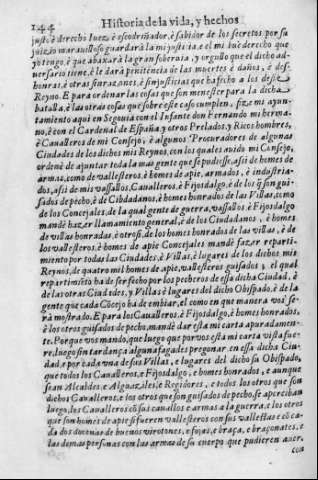 144 Historia de la vida, y hechos
justo, è derecho Iuez, è escodriñador, è sabidor de los secretos por su
juizio marauilloso guardarà la mi justicia, e el mi buẽ derecho que
yo tengo, è que abaxarà la gran soberuia, y orgullo que el dicho ad-
uersario tiene, è le darà penitẽcia de las muertes è daños, è des-
honras, è otras sinrazones, è sinjusticias que ha fecho a los deste
Reyno. E para ordenar las cosas que son menester para la dicha
batalla, è las otras cosas que sobre este caso cumplen, fize mi ayun-
tamiento aqui en Segouia con el Infante don Fernando mi herma-
no, è con el Cardenal de España, y otros Prelados, y Ricos hombres,
è Caualleros de mi Consejo, è algunos Procuradores de algunas
Ciudades de los dichos mis Reynos, con los quales auido mi Consejo,
ordenè de ajuntar toda la mas gente que se pudiesse, assi de homes de
armas, como de vallesteros, è homes de apie, armados, è industria-
dos, assi de mis vassallos, Caualleros, è Fijosdalgo, è de los q̃ son gui-
sados de pecho, è de Cibdadanos, è homes honrados de las Villas, como
de los Concejales, de la qual gente de guerra, vassallos, è Fijosdalgo
mandè hazer llamamiento general, è de los Ciudadanos, è homes
de villas honradas, è otrosi, de los homes honrados de las villas, è de
los vallesteros, è homes de apie Concejales mandè fazer reparti-
miento por todas las Ciudades, è Villas, è lugares de los dichos mis
Reynos, de quatro mil homes de apie, vallesteros guisados, el qual
repartimiẽto ha de ser fecho por los pecheros de essa dicha Ciudad, è
de las otras Ciudades, y Villas è lugares del dicho Obispado, è de la
gente que cada Cõcejo ha de embiar, el como en que manera vos se-
rà mostrado. E para los Caualleros, è Fijosdalgo, è homes honrados,
è los otros guisados de pecho, mandè dar esta mi carta apuradamen-
te. Porque vos mando, que luego que por vos esta mi carta vista fue-
re, luego sin tardança alguna fagades pregonar en essa dicha Ciu-
dad, e por cada vna de sus Villas, e lugares del dicho su Obispado,
que todos los Caualleros, e Fijosdalgo, e homes honrados, e aunque
sean Alcaldes, e Alguaziles, è Regidores, e todos los otros que son
dichos Caualleros, e los otros que son guisados de pecho, se aperciban
luego, los Caualleros cõ sus cauallos e armas a la guerra, e los otros
que son homes de apie si fueren vallesteros con sus vallestas e cõ ca-
da dos docenas de buenos virotones, e fojas, e braça, e braçonates, e
las demas personas con las armas de su cuerpo que pudieren auer,
con